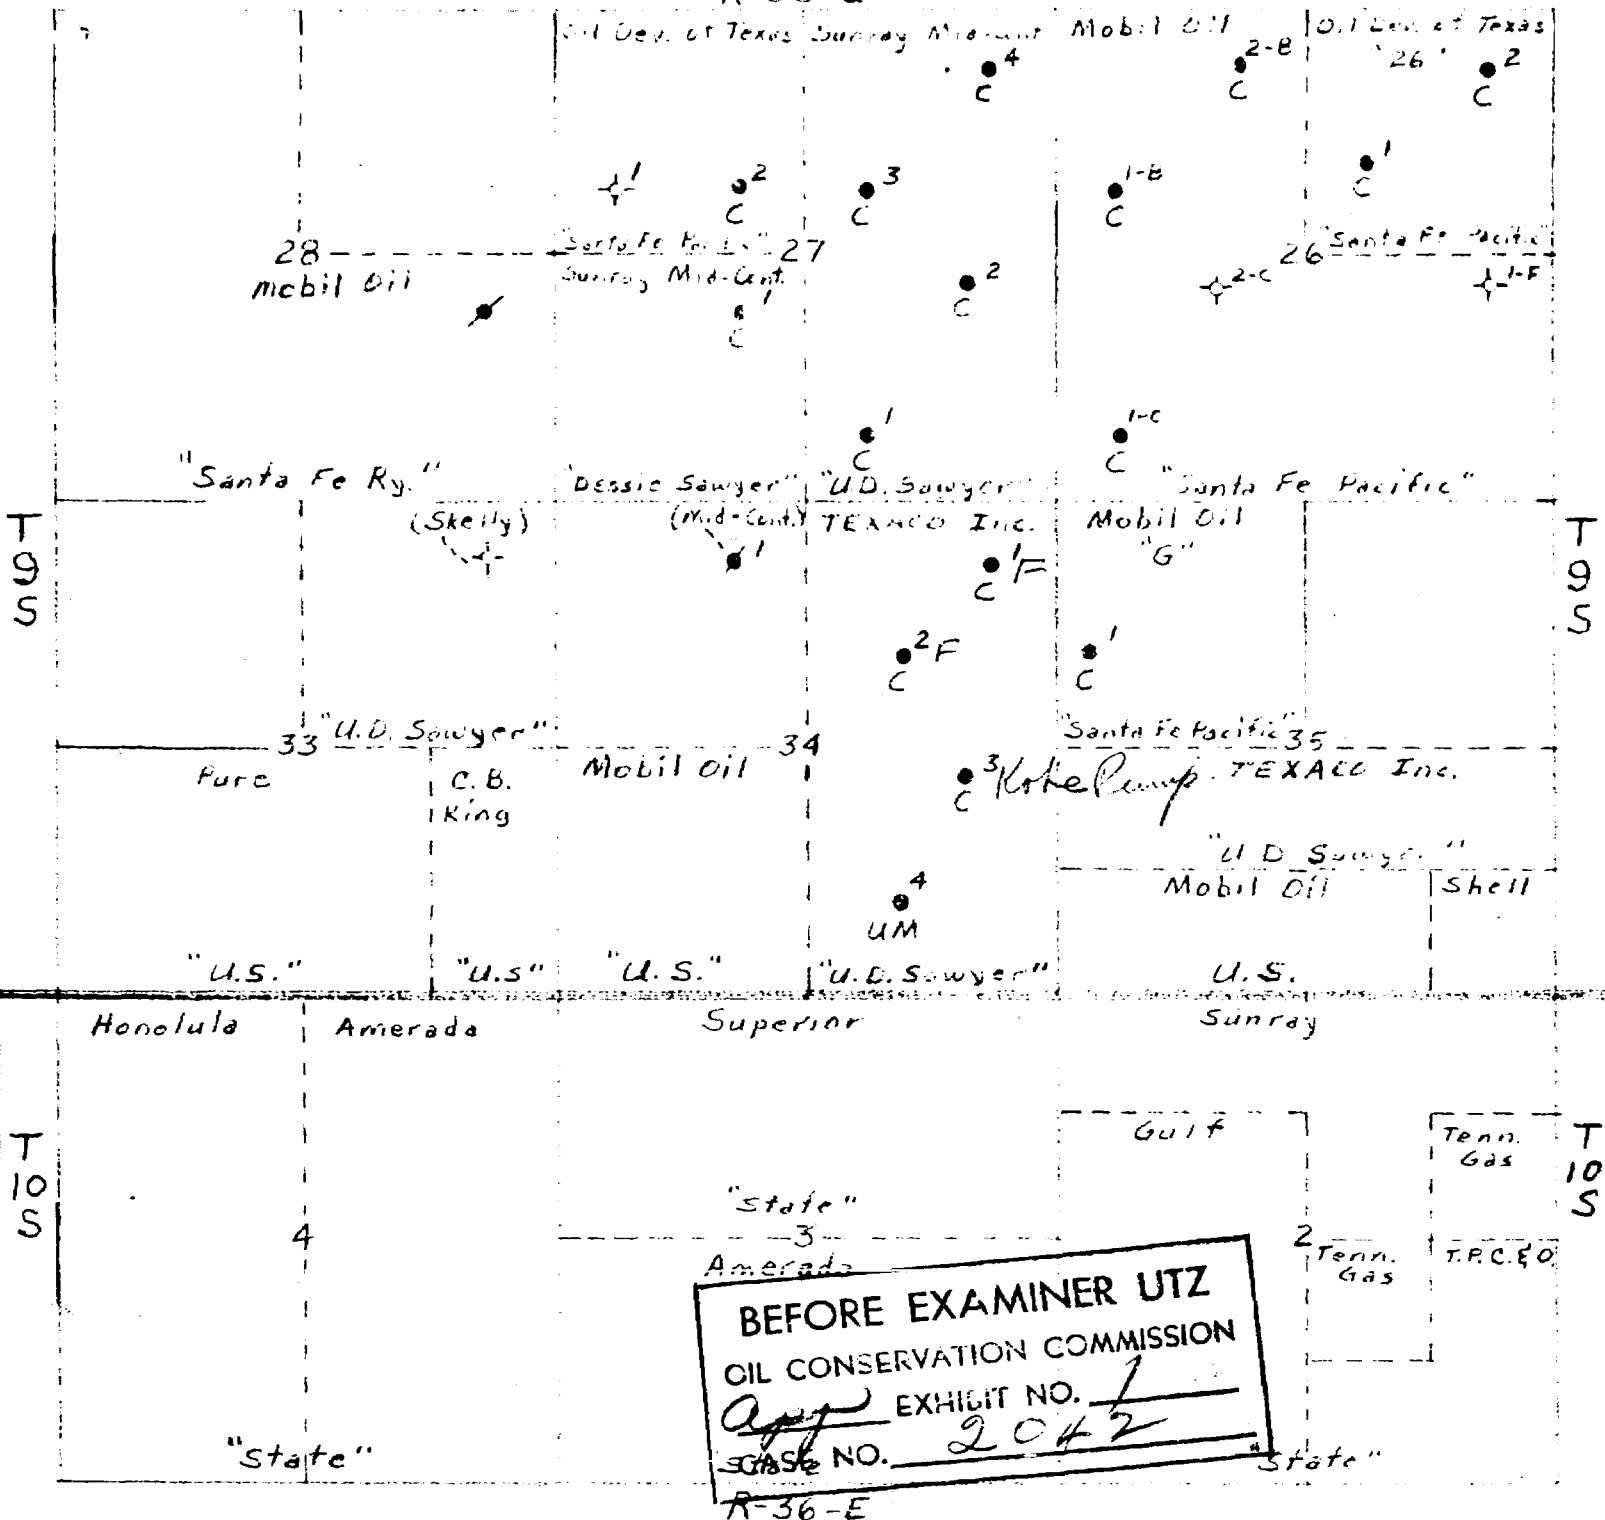 Oil Dev. of Texas Sunray Mid-Cont Mobil Oil Oil Dev. of Texas
"26"
4
C
2-B
C
2
C
1
2
C
3
C
1-B
C
1
C
28 "Santa Fe Pacific" 27 26 "Santa Fe Pacific"
Mobil Oil Sunray Mid-Cont.
1
C
2
C
2-C
1-F
1
C
1-C
C
"Santa Fe Ry." "Dessie Sawyer" "U.D. Sawyer" "Santa Fe Pacific"
(Skelly) (Mid-Cont.) TEXACO Inc. Mobil Oil
"G"
T
9
S
T
9
S
1
1 F
C
2 F
C
1
C
33 "U.D. Sawyer" 34 "Santa Fe Pacific" 35
Pure C.B. King Mobil Oil 3 Kobe Pump TEXACO Inc.
C
"U D Sawyer"
4
UM
Mobil Oil Shell
"U.S." "U.S" "U.S." "U.D. Sawyer" U.S.
Honolula Amerada Superior Sunray
T
10
S
T
10
S
Gulf Tenn. Gas
"State"
4 3 2
Amerada Tenn. Gas T.P.C.&O.
BEFORE EXAMINER UTZ
OIL CONSERVATION COMMISSION
App EXHIBIT NO. 1
CASE NO. 2042
"State" "State"
R-36-E